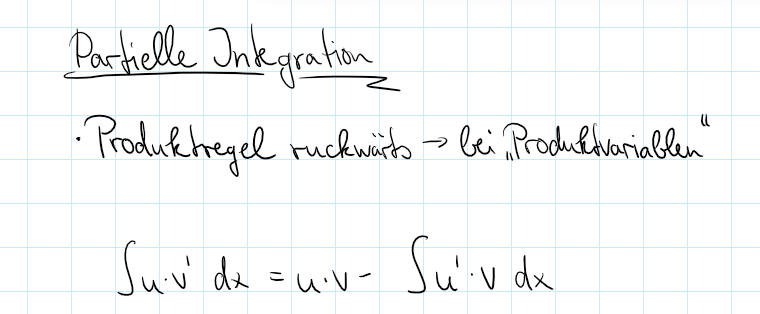 Partielle Integration
· Produktregel ruckwärts → bei „Produktvariablen“
∫u·v' dx = u·v - ∫u'·v dx